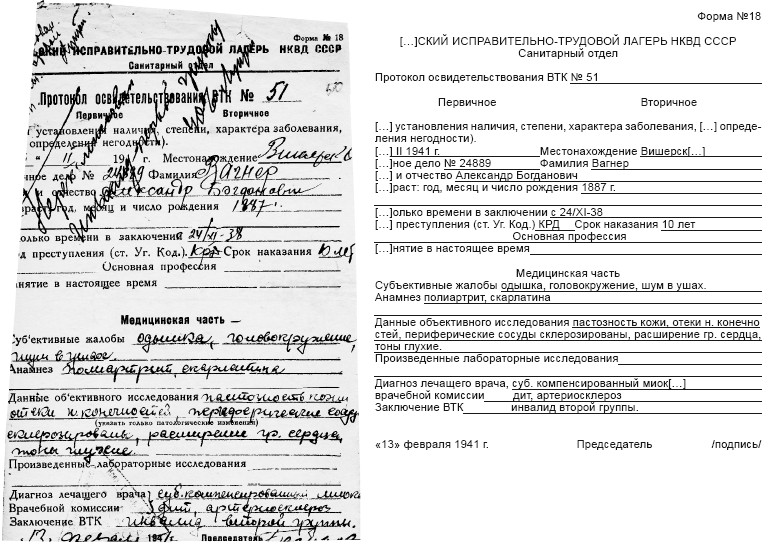 Форма № 18
СКИЙ ИСПРАВИТЕЛЬНО-ТРУДОВОЙ ЛАГЕРЬ НКВД СССР
Санитарный отдел
Протокол освидетельствования ВТК № 51
Первичное Вторичное
установления наличия, степени, характера заболевания,
определения негодности).
" II 194 г. Местонахождение
ное дело № 24889 Фамилия Вагнер
и отчество Александр Богданович
раст: год, месяц и число рождения 1887г.
олько времени в заключении с 24/XI-38
преступления (ст. Уг. Код.) КРД Срок наказания 10 лет
Основная профессия
нятие в настоящее время
Медицинская часть —
Суб'ективные жалобы одышка, головокружение,
шум в ушах.
Анамнез полиартрит, скарлатина
Данные об'ективного исследования пастозность кожи
отеки н. конечностей, периферические сосуды
(указать только патологические изменения)
склерозированы, расширение гр. сердца,
тоны глухие.
Произведенные лабораторные исследования
Диагноз лечащего врача суб. компенсированный миок
Врачебной комиссии дит, артериосклероз
Заключение ВТК инвалид второй группы.
13 февраля 194 Председатель
Форма №18
[…]СКИЙ ИСПРАВИТЕЛЬНО-ТРУДОВОЙ ЛАГЕРЬ НКВД СССР
Санитарный отдел
Протокол освидетельствования ВТК № 51
Первичное Вторичное
[…] установления наличия, степени, характера заболевания, […] опреде-
ления негодности).
[…] II 1941 г. Местонахождение Вишерск[…]
[…]ное дело № 24889 Фамилия Вагнер
[…] и отчество Александр Богданович
[…]раст: год, месяц и число рождения 1887 г.
[…]олько времени в заключении с 24/XI-38
[…] преступления (ст. Уг. Код.) КРД Срок наказания 10 лет
Основная профессия
[…]нятие в настоящее время
Медицинская часть
Субъективные жалобы одышка, головокружение, шум в ушах.
Анамнез полиартрит, скарлатина
Данные объективного исследования пастозность кожи, отеки н. конечно
стей, периферические сосуды склерозированы, расширение гр. сердца,
тоны глухие.
Произведенные лабораторные исследования
Диагноз лечащего врача, суб. компенсированный миок[…]
врачебной комиссии дит, артериосклероз
Заключение ВТК инвалид второй группы.
«13» февраля 1941 г. Председатель /подпись/